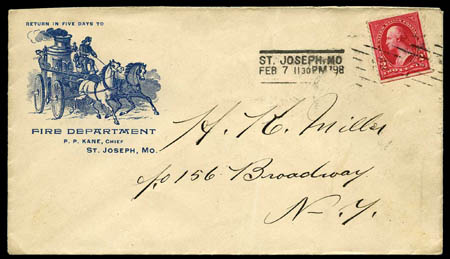 RETURN IN FIVE DAYS TO
FIRE DEPARTMENT
P. P. KANE, CHIEF
ST. JOSEPH, MO.
ST. JOSEPH, MO
FEB 7 1130PM '98
H. K. Miller
156 Broadway
N-Y.